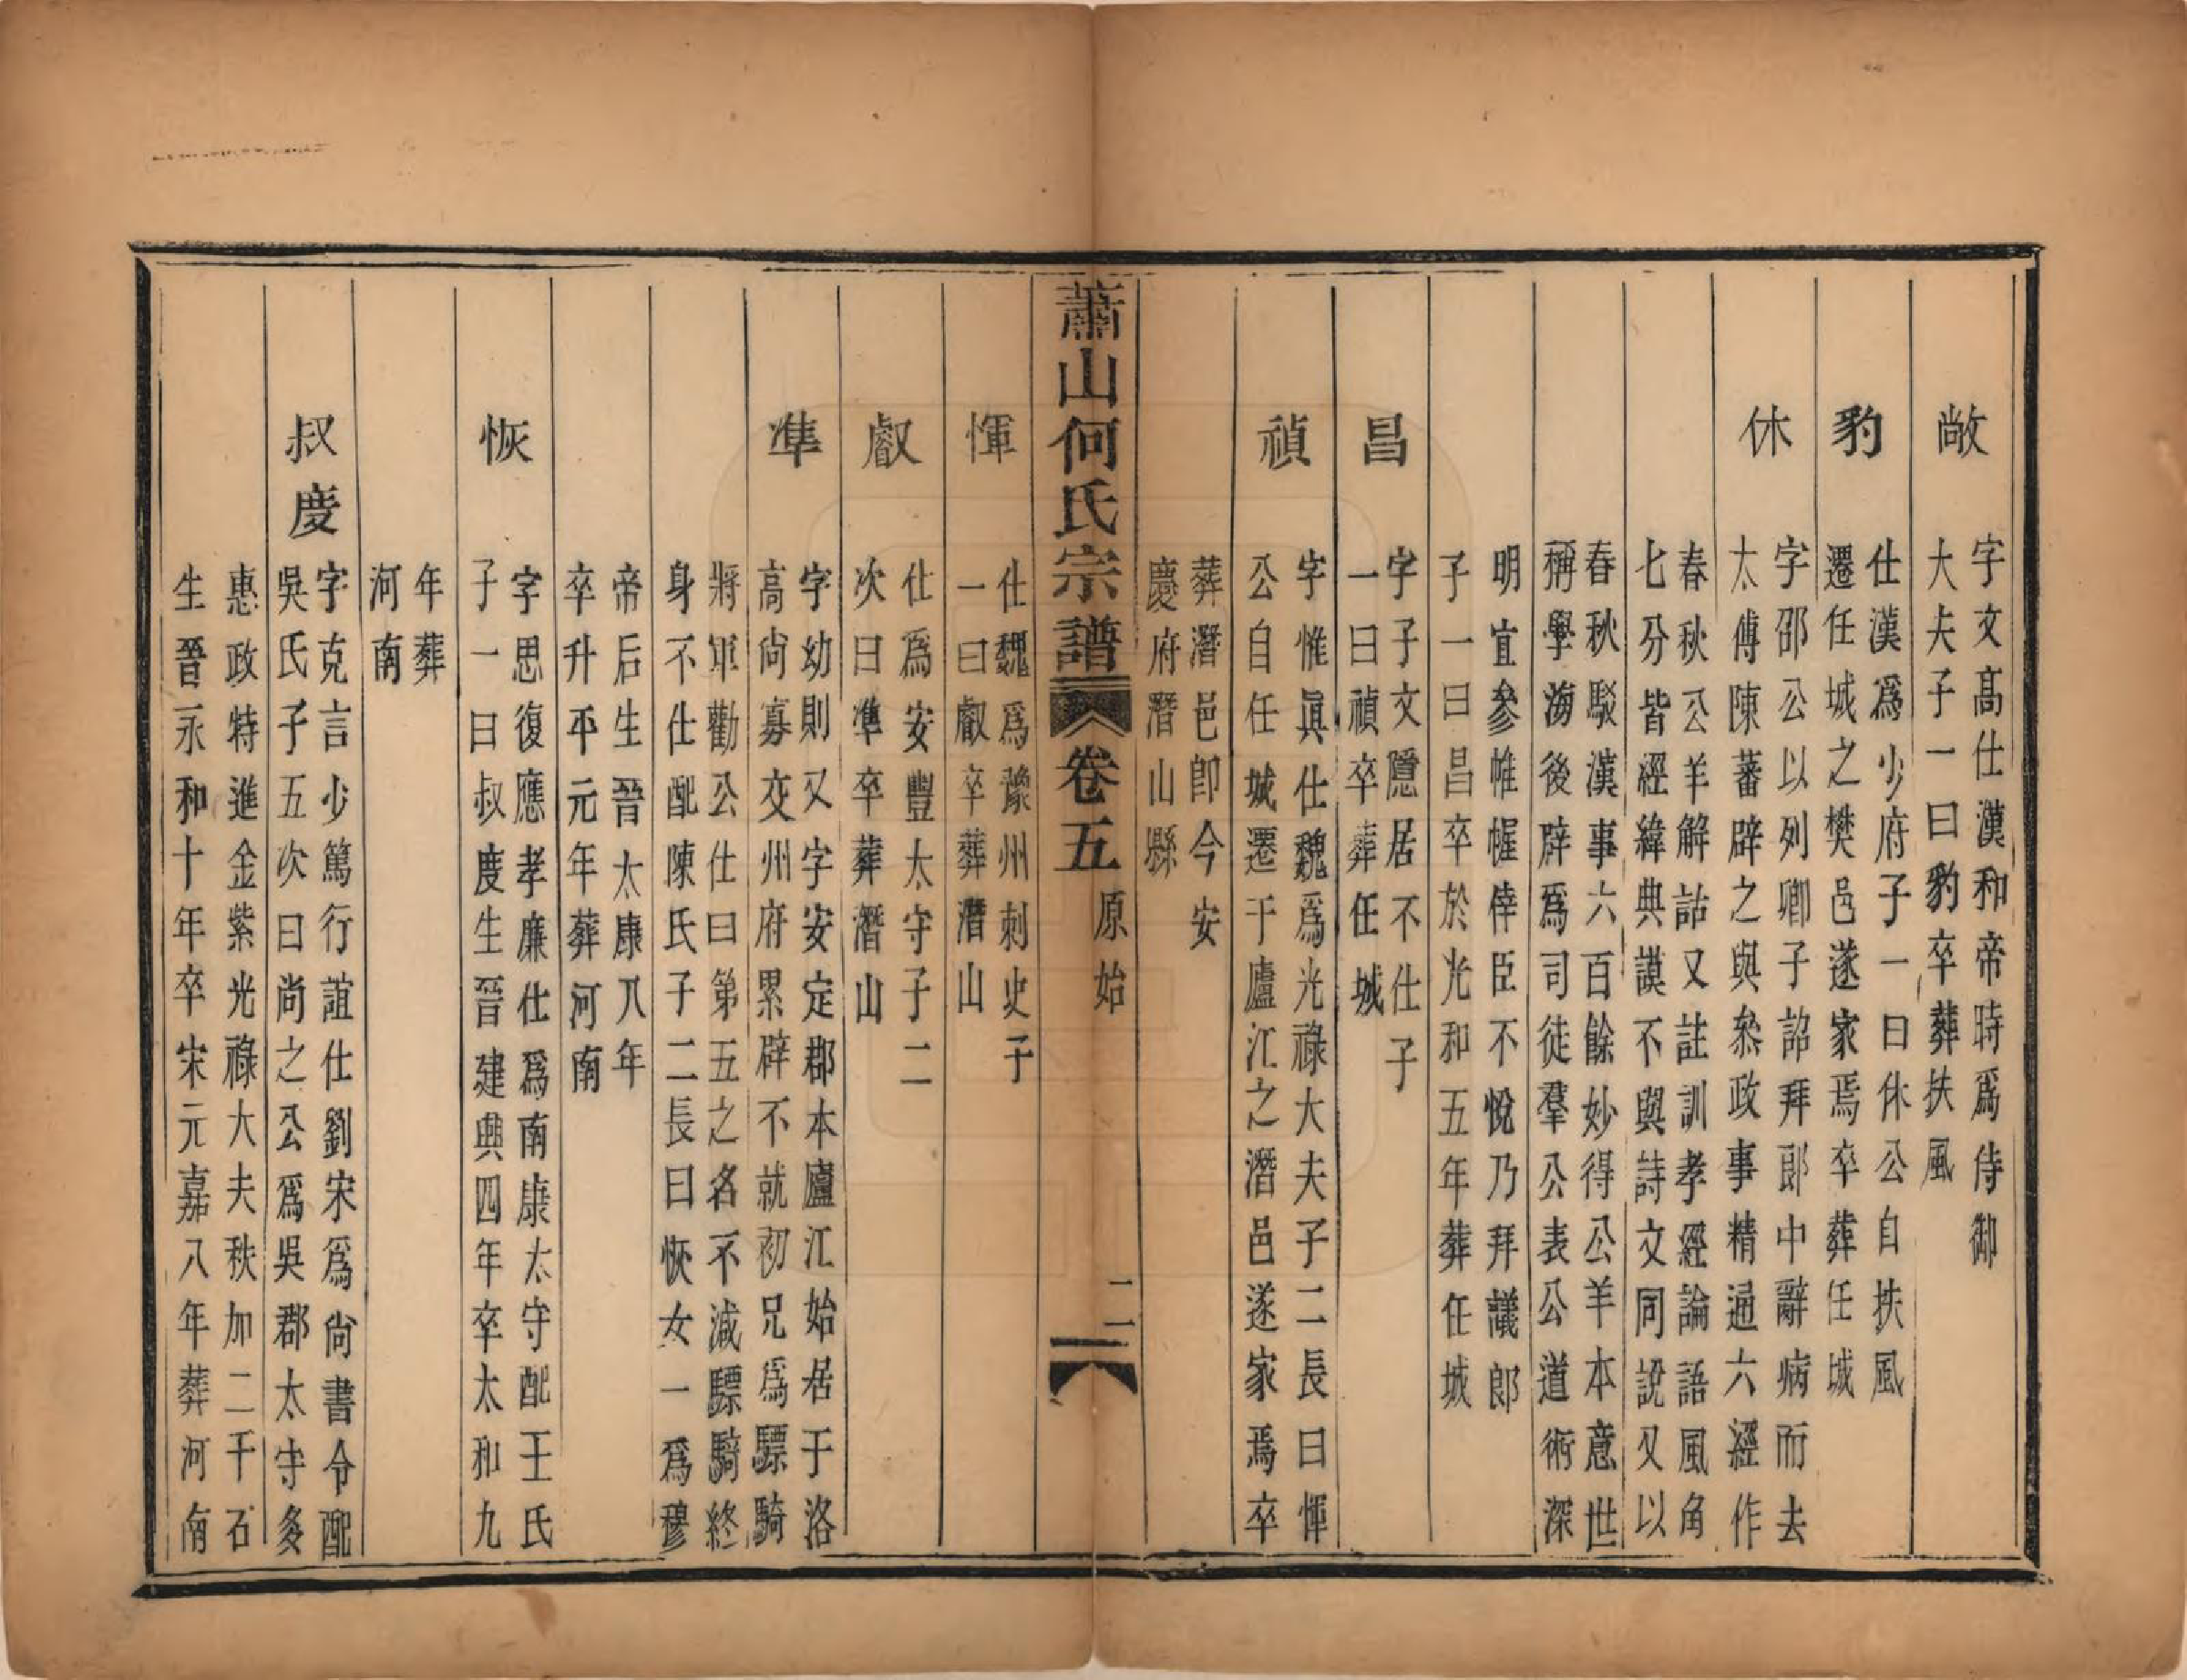 敞
字文高仕漢和帝時爲侍御
大夫子一曰豹卒葬扶風
豹
仕漢爲少府子一曰休公自扶風
遷任城之樊邑遂家焉卒葬任城
休
字邵公以列卿子詔拜郎中辭病而去
太傅陳蕃辟之與叅政事精通六經作
春秋公羊解詁又註訓孝經論語風角
七分皆經緯典謨不與詩文同說又以
春秋駁漢事六百餘妙得公羊本意世
稱學海後辟爲司徒羣公表公道術深
明宜參帷幄倖臣不悅乃拜議郎
子一曰昌卒於光和五年葬任城
昌
字子文隱居不仕子
一曰禎卒葬任城
禎
字惟眞仕魏爲光祿大夫子二長曰惲
公自任城遷于廬江之潛邑遂家焉卒
葬潛邑卽今安
慶府潛山縣
蕭山何氏宗譜 卷五 原始 二
惲
仕魏爲豫州刺史子
一曰叡卒葬潛山
叡
仕爲安豐太守子二
次曰凖卒葬潛山
凖
字幼則又字安定郡本廬江始居于洛
高尙寡交州府累辟不就初兄爲驃騎
將軍勸公仕曰第五之名不減驃騎終
身不仕配陳氏子二長曰恢女一爲穆
帝后生晉太康八年
卒升平元年葬河南
恢
字思復應孝廉仕爲南康太守配王氏
子一曰叔度生晉建興四年卒太和九
年葬
河南
叔慶
字克言少篤行誼仕劉宋爲尙書令配
吳氏子五次曰尙之公爲吳郡太守多
惠政特進金紫光祿大夫秩加二千石
生晉永和十年卒宋元嘉八年葬河南